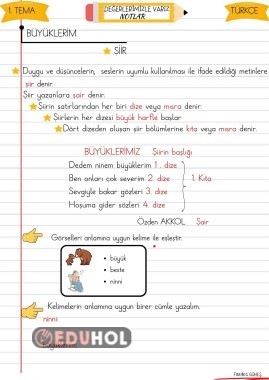 1. TEMA
DEĞERLERİMİZLE VARIZ
NOTLAR
TÜRKÇE
BÜYÜKLERİM
ŞİİR
Duygu ve düşüncelerin, seslerin uyumlu kullanılması ile ifade edildiği metinlere
şiir denir.
Şiir yazanlara şair denir.
Şiirin satırlarından her biri dize veya mısra denir.
Şiirlerin her dizesi büyük harfle başlar
Dört dizeden oluşan şiir bölümlerine kıta veya mısra denir.
BÜYÜKLERİMİZ Şiirin başlığı
Dedem ninem büyüklerim 1. dize
Ben onları çok severim 2. dize
Sevgiyle bakar gözleri 3. dize
Hoşuma gider sözleri 4. dize
1. Kıta
Özden AKKOL Şair
Görselleri anlamına uygun kelime ile eşleştir.
büyük
beste
ninni
Kelimelerin anlamına uygun birer cümle yazalım.
ninni
EDUHOL